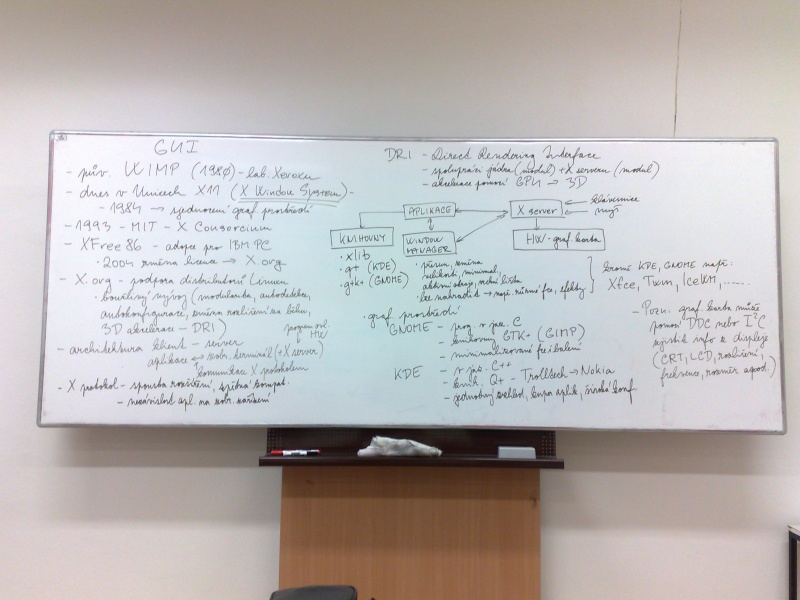 GUI
- pův. WIMP (1980) - lab. Xeroxu
- dnes v Unicech X11 (X Window System) -
- 1984 → sjednocení graf. prostředí
- 1993 - MIT - X Consorcium
- XFree86 - adopce pro IBM PC
• 2004 změna licence → X.org
- X.org - podpora distributorů Linuxu
• bouřlivý vývoj (modularita, autodetekce,
autokonfigurace, změna rozlišení za běhu,
3D akcelerace - DRI)
- architektura klient - server
program ovl. HW
aplikace ↔ zobr. terminál (+X server)
komunikace X protokolem
- X protokol - spousta rozšíření, zpětná kompat.
- nezávislost apl. na zobr. zařízení
DRI - Direct Rendering Interface
- spolupráce jádra (modul) + X serveru (modul)
- akcelerace pomocí GPU → 3D
APLIKACE
X server
klávesnice
myš
KNIHOVNY
WINDOW MANAGER
HW - graf. karta
• xlib
• q+ (KDE)
• gtk+ (GNOME)
• přesun, změna
velikosti, minimal.,
aktivní okraje, roční lišta
• lze nahradit → např. různé fce, efekty
kromě KDE, GNOME např.:
Xfce, Twm, IceWM, .....
• graf. prostředí
GNOME - prog. v jaz. C
- knihovny GTK+ (GIMP)
- minimalizované fce i balení
KDE - v jaz. C++
- knih. Q+ - Trolltech → Nokia
- jednotný vzhled, kupa aplik., široká konf.
- Pozn.: graf. karta může
pomocí DDC nebo I²C
zjistit info o displeji
(CRT, LCD, rozlišení,
frekvence, rozměr apod.)